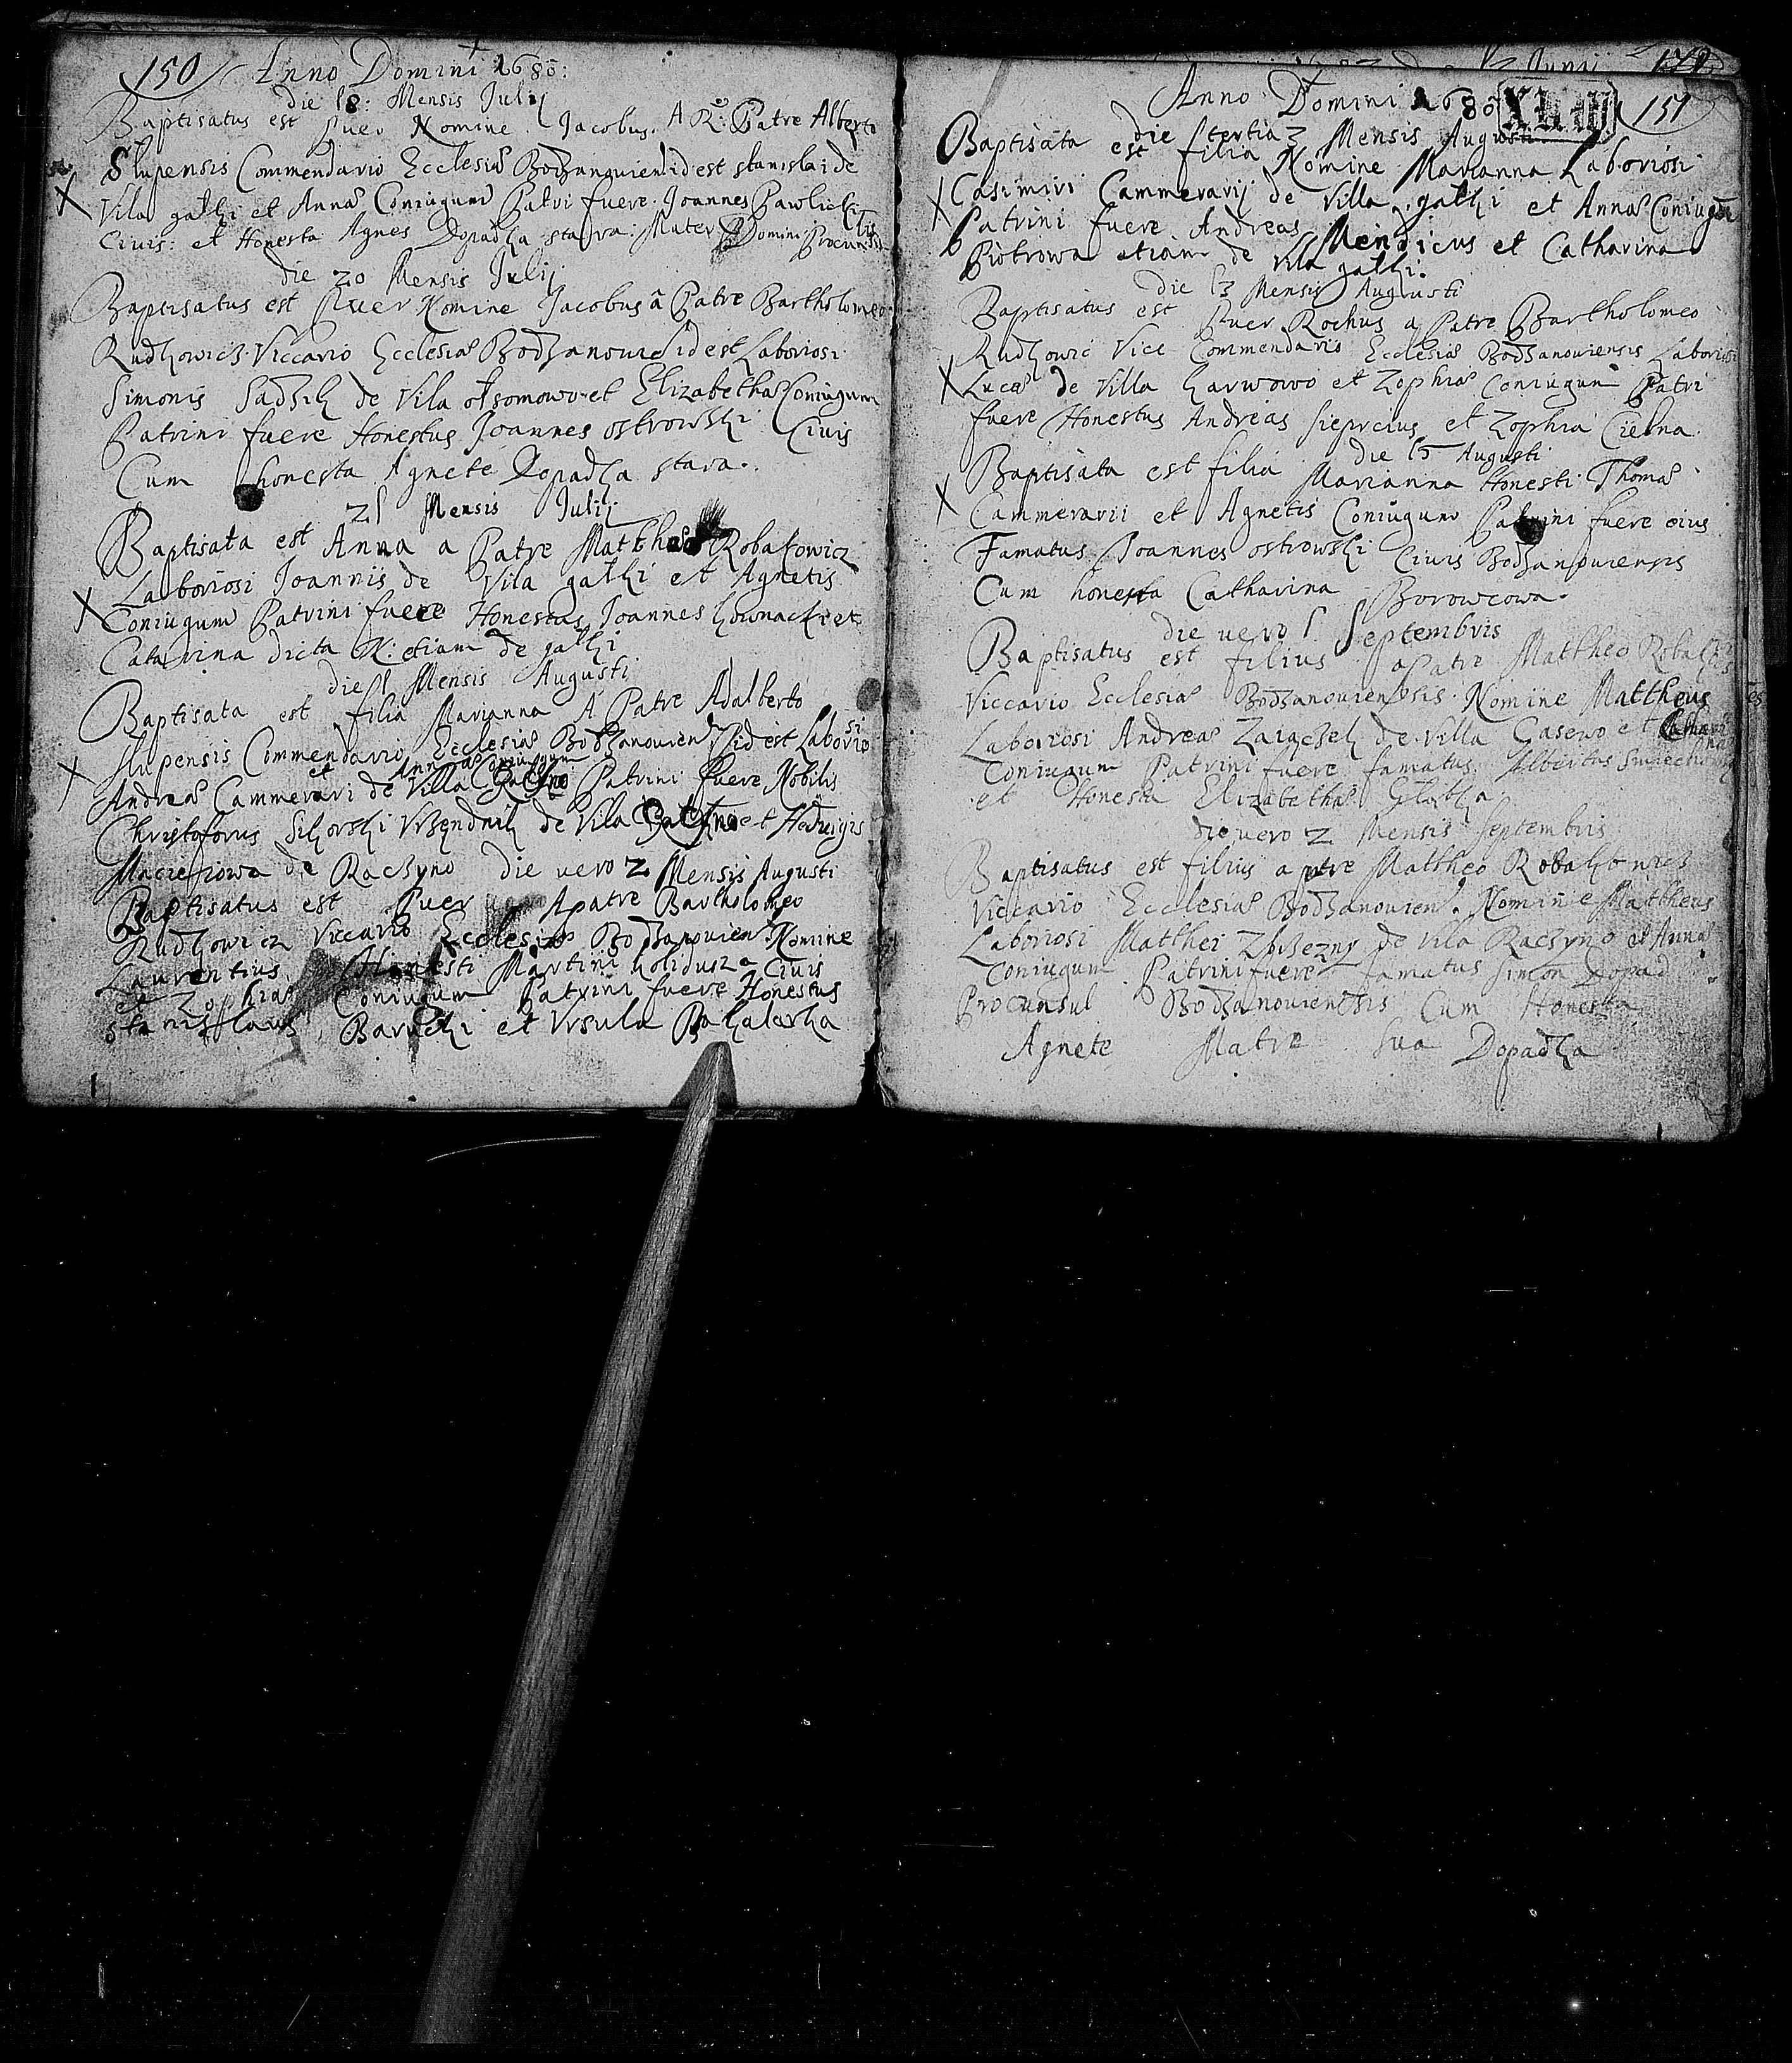 150 Anno Domini 1680:
die 18: Mensis Julij
Baptisatus est Puer Nomine Jacobus. A R: Patre Alberto
Slupensis Commendario Ecclesiæ Bodzanouien id est stanislai de
Vila gathi et Annæ Coniugum Patri fuere Joannes Pawlicki
Ciuis: et Honesta Agnes Dopadka stara Mater Domini
die 20 Mensis Julij
Baptisatus est Puer Nomine Jacobus â Patre Bartholomeo
Rudkowicz Viccario Ecclesiæ Bodzanouien id est Laboriosi
Simonis Sadzik de Vila et Elizabethæ Coniugum
Patrini fuere Honestus Joannes ostrowski Ciuis
Cum honesta Agnete Dopadka stara.
21 Mensis Julij
Baptisata est Anna a Patre Matthæo Robakowicz
Laboriosi Joannis de Vila gathi et Agnetis
Coniugum Patrini fuere Honestus Joannes et
Catarina dicta N: etiam de gathi
die 1 Mensis Augusti
Baptisata est filia Marianna A Patre Adalberto
slupensis Commendario Ecclesiæ Bodzanouien id est Laboriosi
et Annæ Coniugum
Andreæ Cammerari de Villa Patrini fuere Nobilis
Christoforus Sikorski Vrzendnik de Vila et Heduigis
Macieiowa de Raczyno die uero 2 Mensis Augusti
Baptisatus est Puer Apatre Bartholomeo
Rudkowicz Viccario Ecclesiæ Bodzanouien Nomine
Laurentius Honesti Martini Ciuis
et Zophiæ Coniugum Patrini fuere Honestus
stanislaus Barucki et Vrsula
Anno Domini 1680 151
die tertia 3 Mensis Augusti
Baptisata est filia Nomine Marianna Laboriosi
Casimiri Cammerarij de Villa gathi et Annæ Coniugum
Patrini fuere Andreas Mendicus et Catharina
Piotrowa etiam de Vila gathi.
die 13 Mensis Augusti
Baptisatus est Puer Rochus a Patre Bartholomeo
Rudkowic Vice Commendario Ecclesiæ Bodzanouiensis Laboriosi
Lucæ de Villa karwowo et Zophiæ Coniugum Patri
fuere Honestus Andreas et Zophia
die 15 Augusti
Baptisata est filia Marianna Honesti Thomæ
Cammerarii et Agnetis Coniugum Patrini fuere eius
Famatus Joannes ostrowski Ciuis Bodzanouiensis
Cum honesta Catharina Borowcowa.
die uero 1 Septembris
Baptisatus est filius a Patre Mattheo
Viccario Ecclesiæ Bodzanouiensis Nomine Mattheus
Laboriosi Andreæ de Villa Gasewo et
Coniugum Patrini fuere famatus Albertus
et Honesta Elizabetha
die uero 2 Mensis Septembris
Baptisatus est filius a patre Mattheo Robakowicz
Viccario Ecclesiæ Bodzanouien. Nomine Mattheus
Laboriosi Matthei de Vila Raczyno et Annæ
Coniugum Patrini fuere famatus Simon
Procunsul Bodzanouiensis Cum Honesta
Agnete Matre sua Dopadka